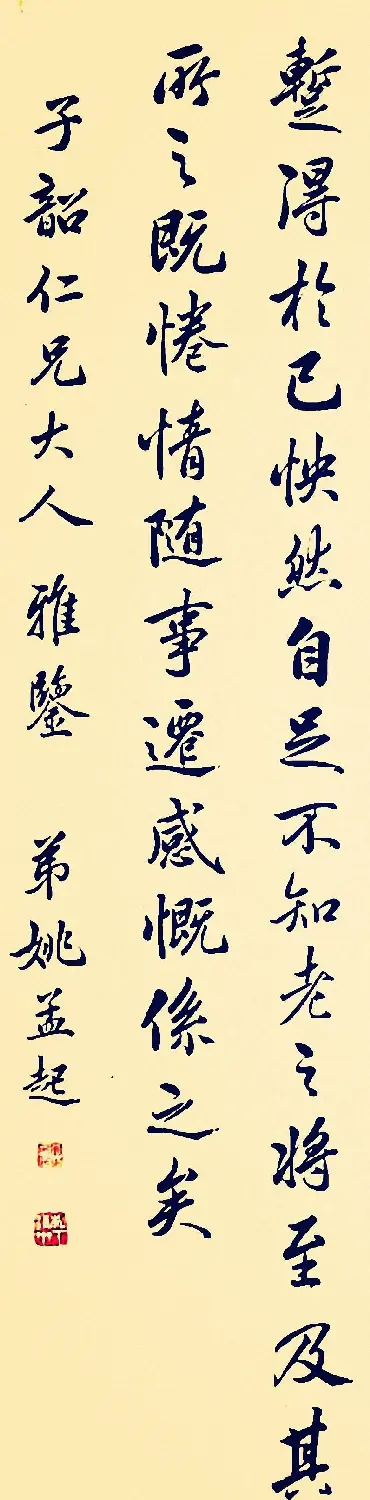 蹔得於己怏然自足不知老之将至及其
所之既惓情随事遷感慨係之矣
子韶仁兄大人 雅鑒 弟姚孟起